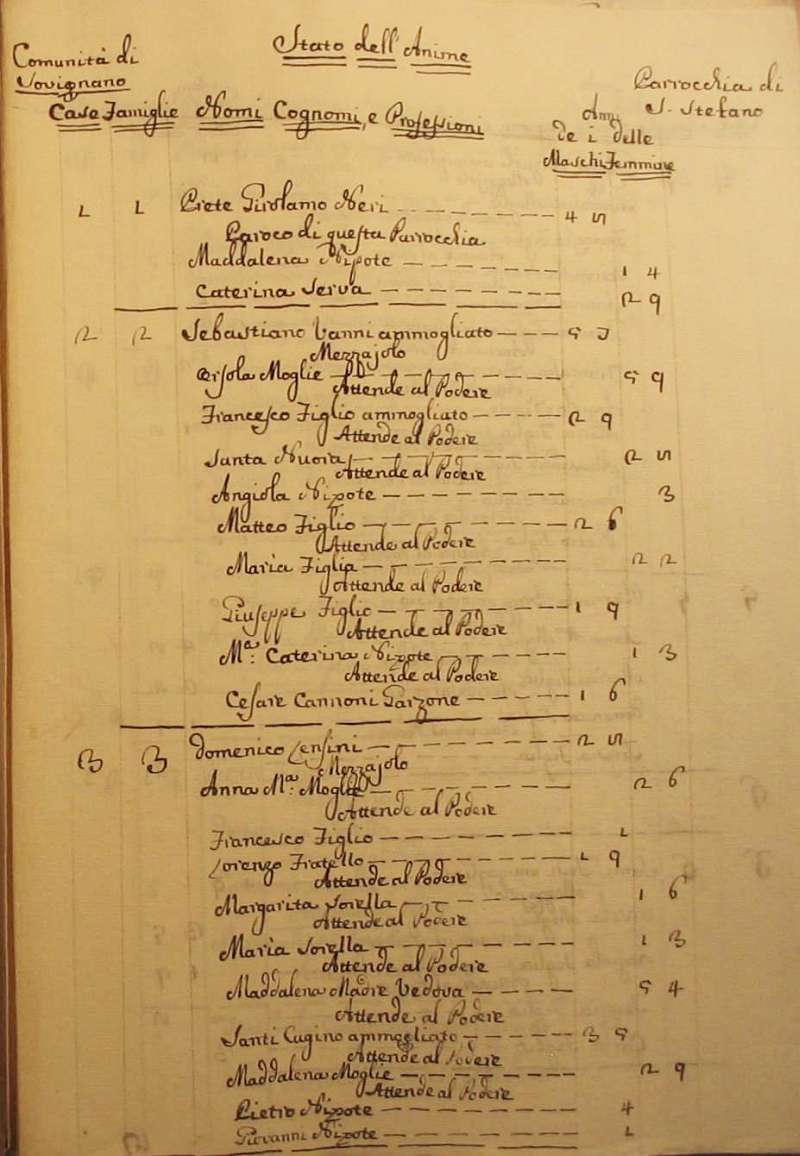 Stato dell'Anime
Comunità di
Vovignano
Parrocchia di
S. Stefano
Case Famiglie Nomi Cognomi, e Professioni
Anni
de i delle
Maschi Femmine
1 1 Prete Girolamo Neri 4 5
Paroco di questa Parrocchia
Maddalena Nipote 1 4
Caterina Serva 2 9
2 2 Sebastiano Vanni ammogliato 5
Mezzajolo
Orsola Moglie 5 9
Attende al Podere
Francesco Figlio ammogliato 2 9
Attende al Podere
Santa Nuora 2 5
Attende al Podere
Angiola Nipote 3
Matteo Figlio 2 6
Attende al Podere
Maria Figlia 2 2
Attende al Podere
Giuseppe Figlio 1 9
Attende al Podere
M.a Caterina Nipote 1 3
Attende al Podere
Cesare Cannoni Garzone 1 6
3 3 Domenico Censini 2 5
Mezzajolo
Anna M.a Moglie 2 6
Attende al Podere
Francesco Figlio 1
Lorenzo Fratello 1 9
Attende al Podere
Margarita Sorella 1 6
Attende al Podere
Maria Sorella 1 3
Attende al Podere
Maddalena Madre Vedova 5 4
Attende al Podere
Santi Cugino ammogliato 3 5
Attende al Podere
Maddalena Moglie 2 9
Attende al Podere
Pietro Nipote 4
Giovanni Nipote 1